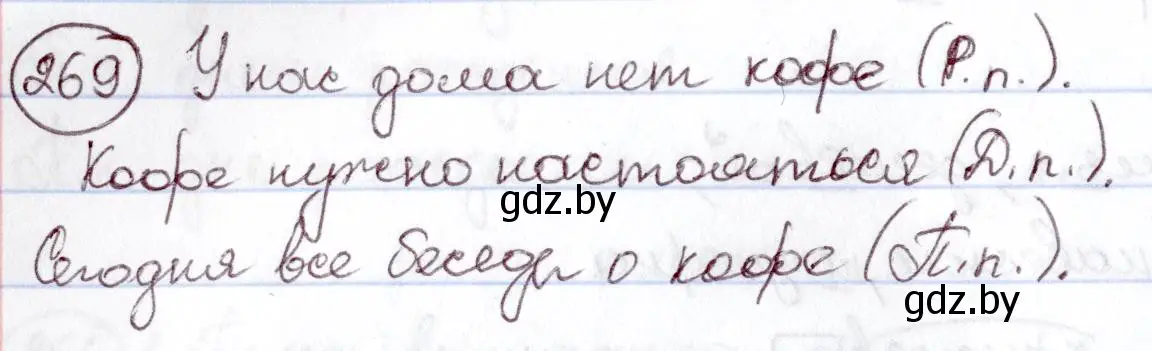 269 У нас дома нет кофе (Р.п.).
Кофе нужно настояться (Д.п.).
gdz.by
Сегодня все беседы о кофе (П.п.).
gdz.by